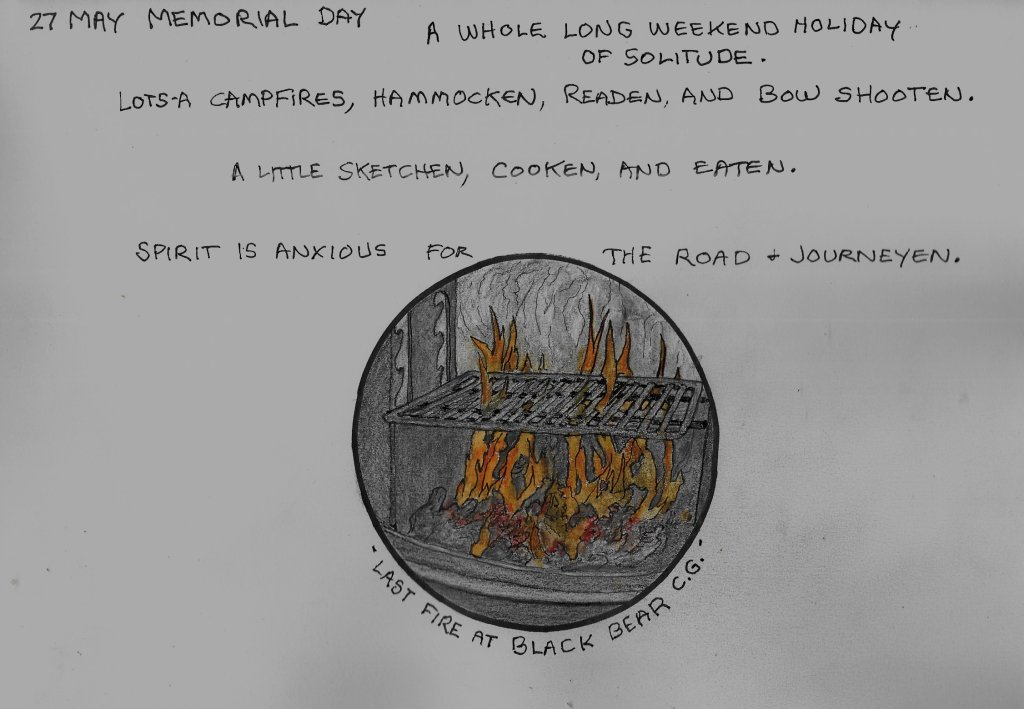 27 MAY MEMORIAL DAY
A WHOLE LONG WEEKEND HOLIDAY
OF SOLITUDE.
LOTS-A CAMPFIRES, HAMMOCKEN, READEN, AND BOW SHOOTEN.
A LITTLE SKETCHEN, COOKEN, AND EATEN.
SPIRIT IS ANXIOUS FOR THE ROAD + JOURNEYEN.
- LAST FIRE AT BLACK BEAR C.G. -